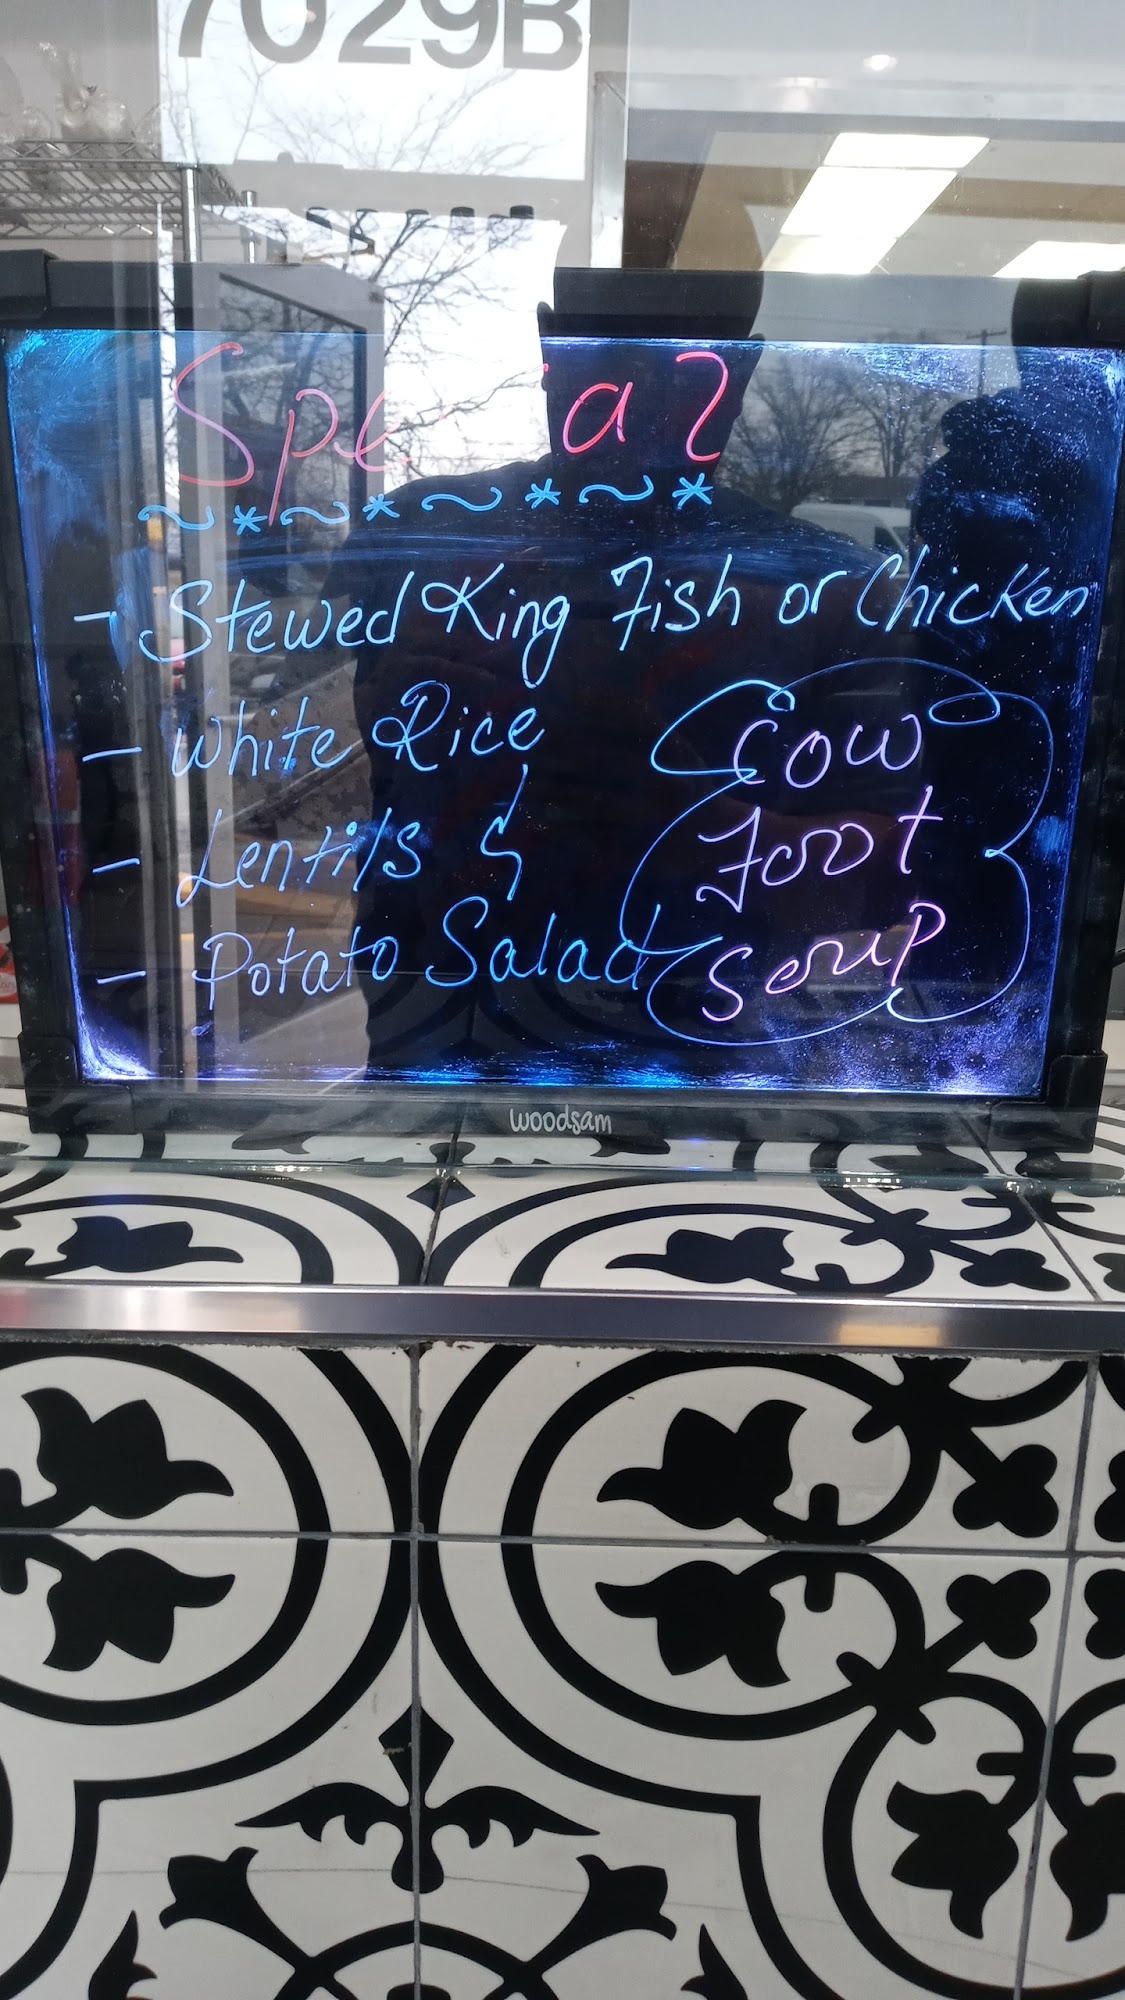 7029B
Special
~*~*~*~*
- Stewed King Fish or Chicken
- White Rice
- Lentils &
- Potato Salad
Cow
Foot
Soup
woodsam